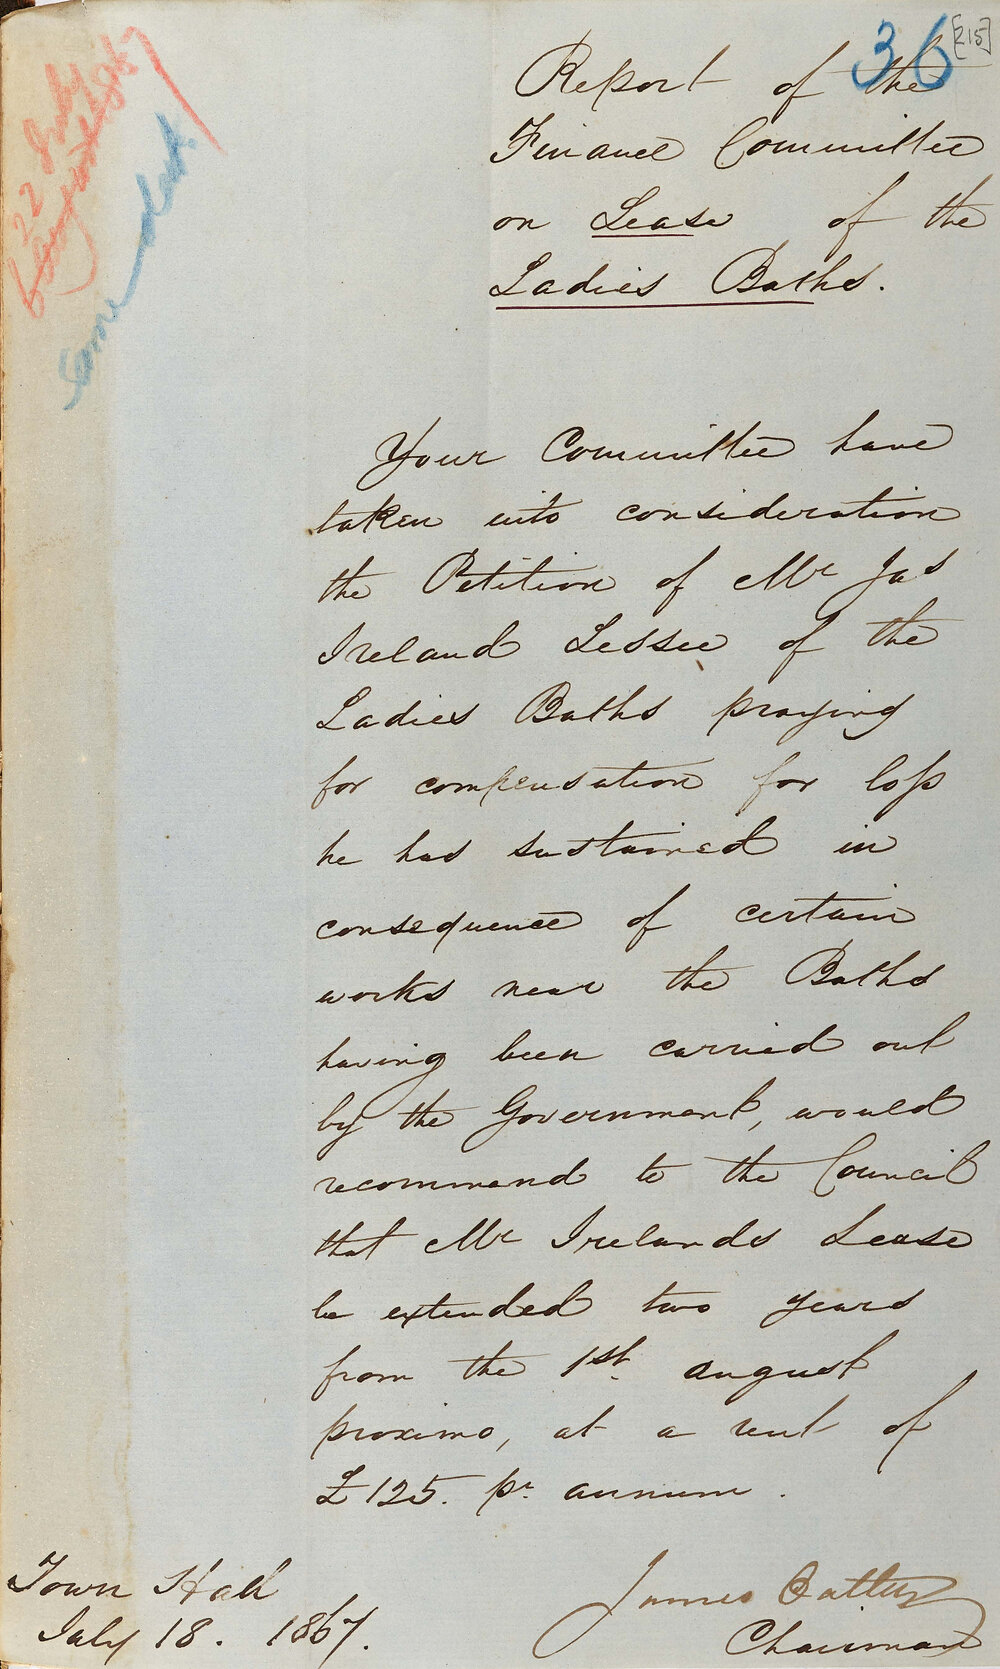 36
[215]
Report of the
Finance Committee
on Lease of the
Ladies Baths.
22 July
1867
Same date
Your Committee have
taken into consideration
the Petition of Mr Jas
Ireland Lessee of the
Ladies Baths praying
for compensation for loss
he has sustained in
consequence of certain
works near the Baths
having been carried out
by the Government, would
recommend to the Council
that Mr Irelands Lease
be extended two years
from the 1st. august
proximo, at a rent of
£125. pr. annum.
James
Chairman
Town Hall
July 18. 1867.